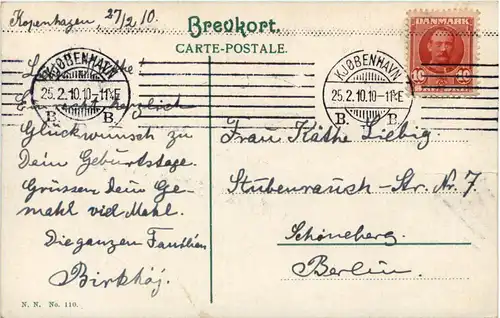 Kopenhagen 27/2 10.
Brevkort.
CARTE-POSTALE.
DANMARK
10 10
KJØBENHAVN
25.2.10.10-11½E
B. B
KJØBENHAVN
25.2.10.10-11½E
B. B
herzlich
Glückwunsch zu
Dein Geburtstage.
Grüssen dein Ge-
mahl viel Mahl.
Die ganzen Familien
Birkhøj.
Frau Käthe Liebig.
Stubenrauch-Str. Nr. 7.
Schöneberg.
Berlin.
N. N. No. 110.